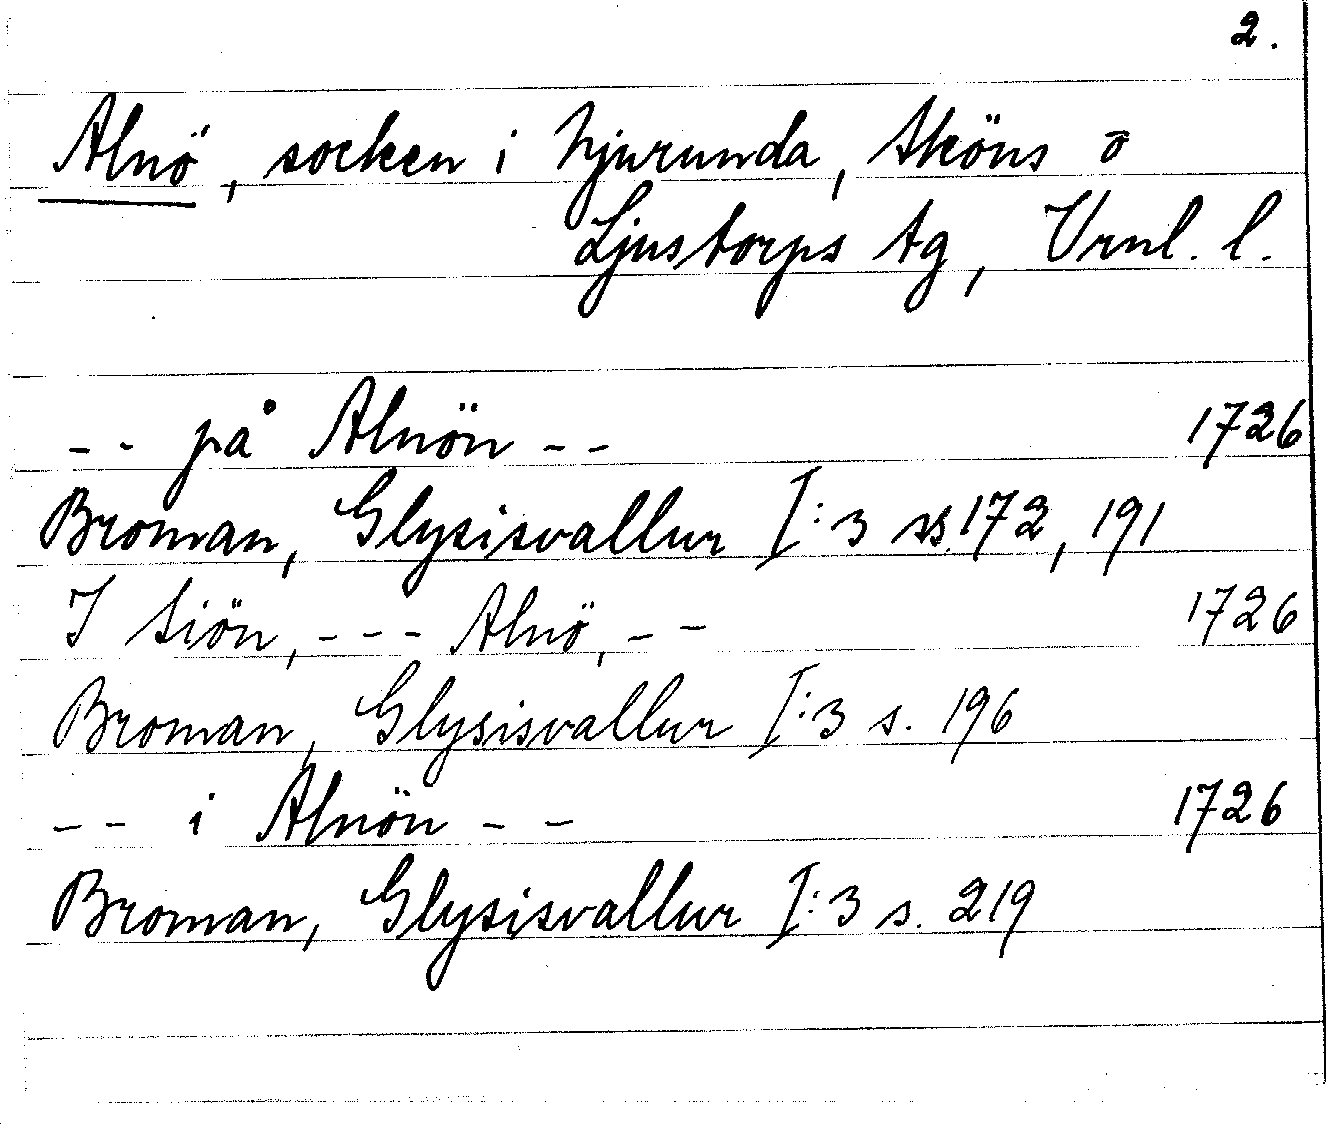 2.
Alnö, socken i Njurunda, Sköns o
Ljustorps tg, Vrnl. l.
-- på Alnön -- 1726
Broman, Glysisvallur I:3 ss. 172, 191
I Siön, --- Alnö, -- 1726
Broman, Glysisvallur I:3 s. 196
-- i Alnön -- 1726
Broman, Glysisvallur I:3 s. 219